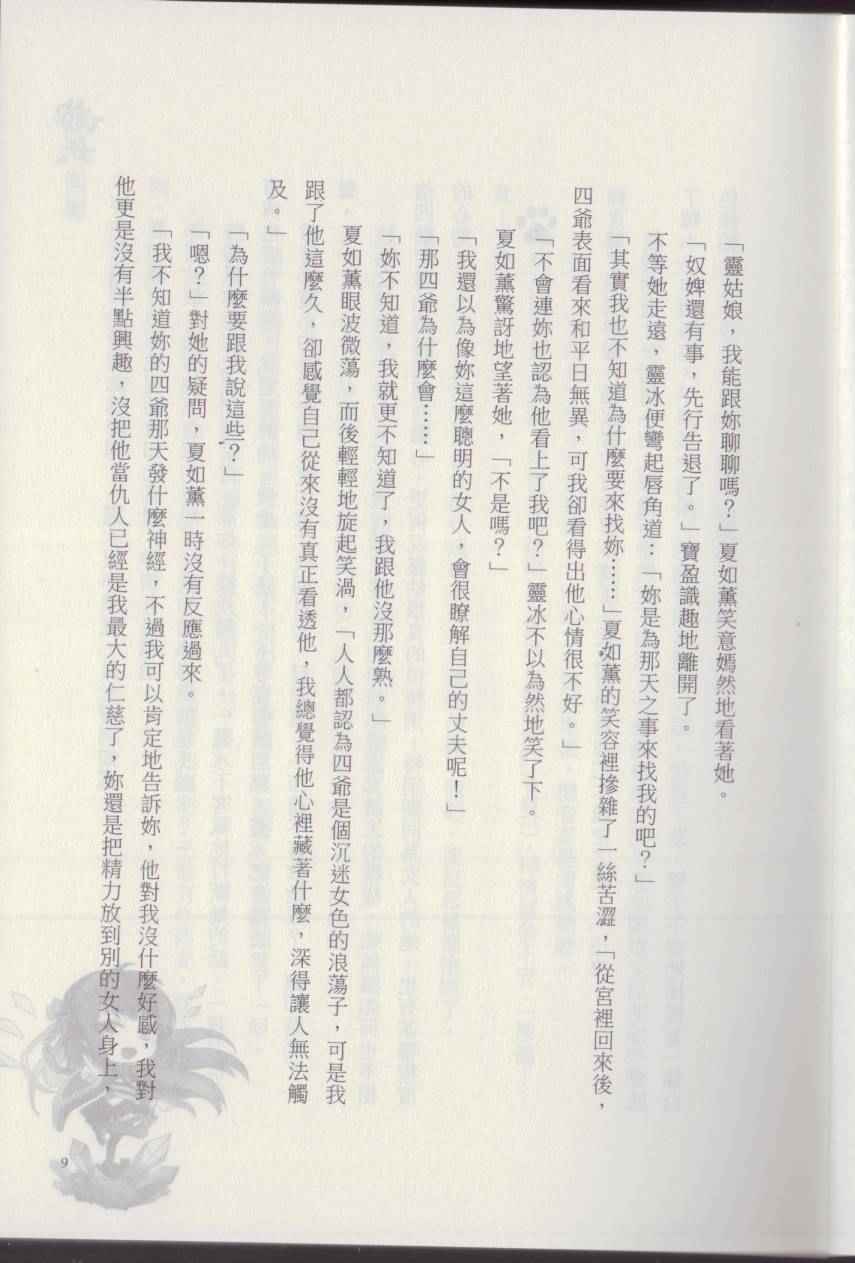 「靈姑娘，我能跟妳聊聊嗎？」夏如薰笑意嫣然地看著她。
「奴婢還有事，先行告退了。」寶盈識趣地離開了。
不等她走遠，靈冰便彎起唇角道：「妳是為那天之事來找我的吧？」
「其實我也不知道為什麼要來找妳……」夏如薰的笑容裡摻雜了一絲苦澀，「從宮裡回來後，
四爺表面看來和平日無異，可我卻看得出他心情很不好。」
「不會連妳也認為他看上了我吧？」靈冰不以為然地笑了下。
夏如薰驚訝地望著她，「不是嗎？」
「我還以為像妳這麼聰明的女人，會很瞭解自己的丈夫呢！」
「那四爺為什麼會……」
「妳不知道，我就更不知道了，我跟他沒那麼熟。」
夏如薰眼波微蕩，而後輕輕地旋起笑渦，「人人都認為四爺是個沉迷女色的浪蕩子，可是我
跟了他這麼久，卻感覺自己從來沒有真正看透他，我總覺得他心裡藏著什麼，深得讓人無法觸
及。」
「為什麼要跟我說這些？」
「嗯？」對她的疑問，夏如薰一時沒有反應過來。
「我不知道妳的四爺那天發什麼神經，不過我可以肯定地告訴妳，他對我沒什麼好感，我對
他更是沒有半點興趣，沒把他當仇人已經是我最大的仁慈了，妳還是把精力放到別的女人身上，
9